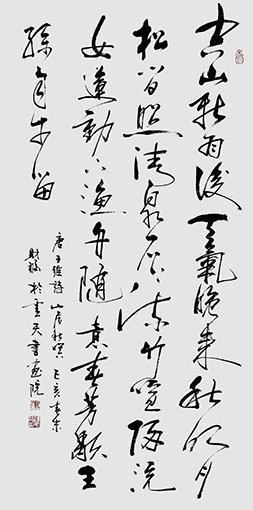 空山新雨後天氣晚來秋明月
松間照清泉石上流竹喧歸浣
女蓮動下漁舟隨意春芳歇王
孫自可留
唐王維詩山居秋暝己亥春
於雲天書畫院